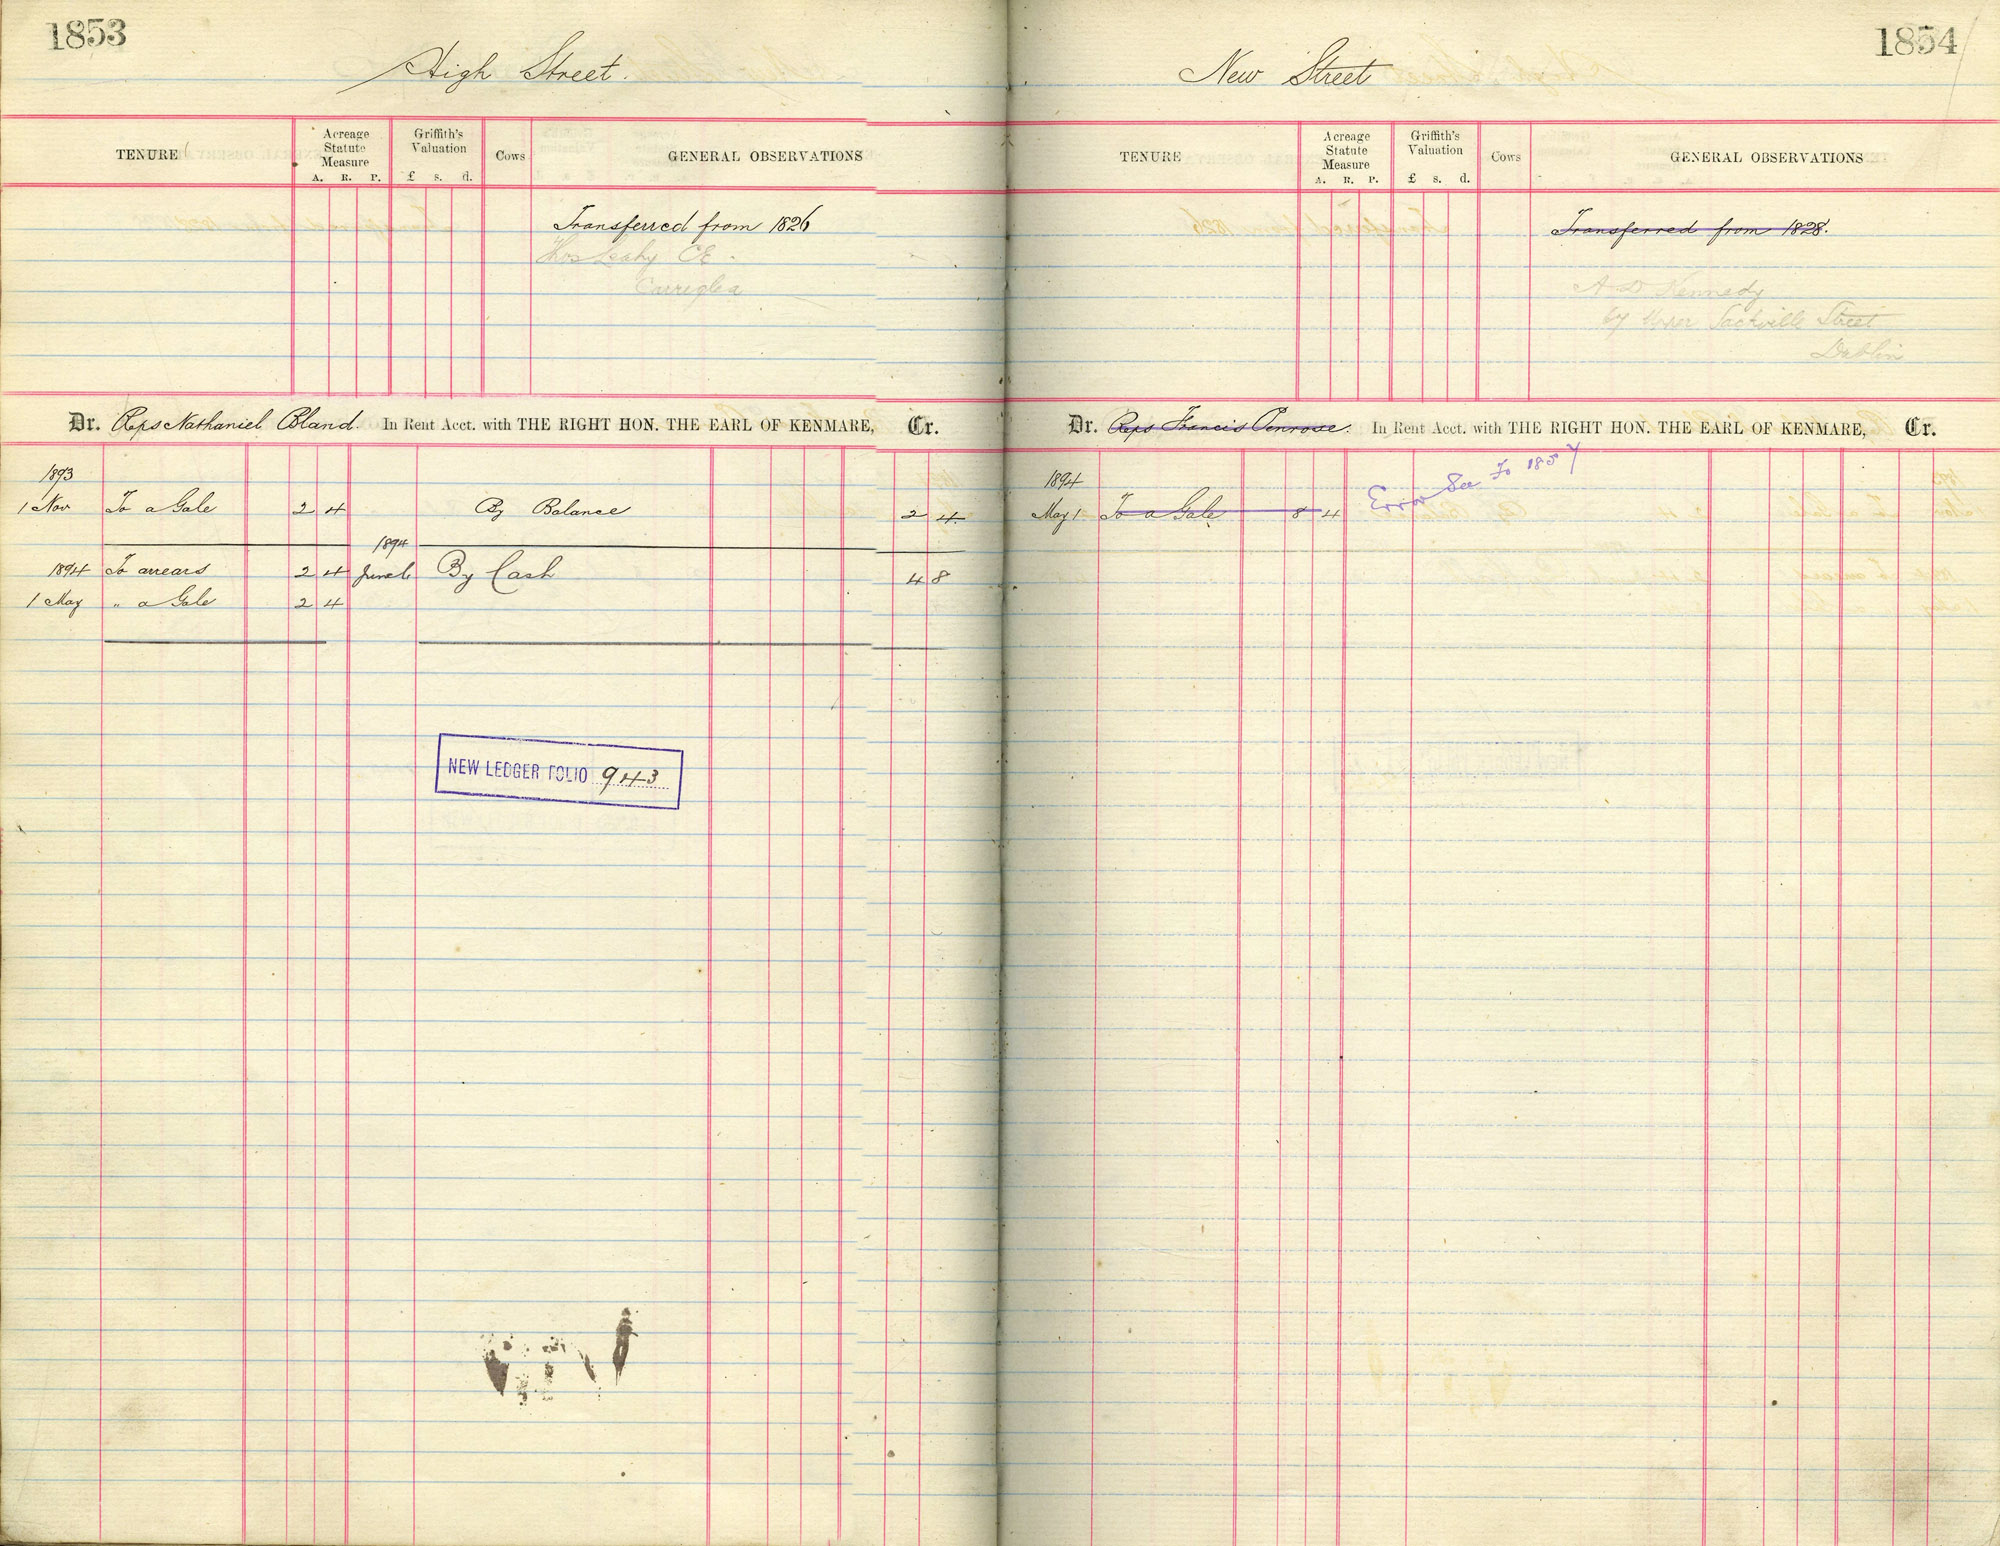 1853
High Street.
TENURE
Acreage Statute Measure
A. R. P.
Griffith's Valuation
£ s. d.
Cows
GENERAL OBSERVATIONS
Transferred from 1826
Thos Leahy CE
Curraglea
Dr. Reps Nathaniel Bland. In Rent Acct. with THE RIGHT HON. THE EARL OF KENMARE, Cr.
1893
1 Nov To a Gale 2 4 By Balance 2 4
1894
1894 To arrears 2 4 June 6 By Cash 4 8
1 May " a Gale 2 4
NEW LEDGER FOLIO 943
1854
New Street
TENURE
Acreage Statute Measure
A. R. P.
Griffith's Valuation
£ s. d.
Cows
GENERAL OBSERVATIONS
Transferred from 1828.
A D Kennedy
67 Upper Sackville Street
Dublin
Dr. Reps Francis Penrose. In Rent Acct. with THE RIGHT HON. THE EARL OF KENMARE, Cr.
1894
May 1 To a Gale 8 4 Error See Fo 1857